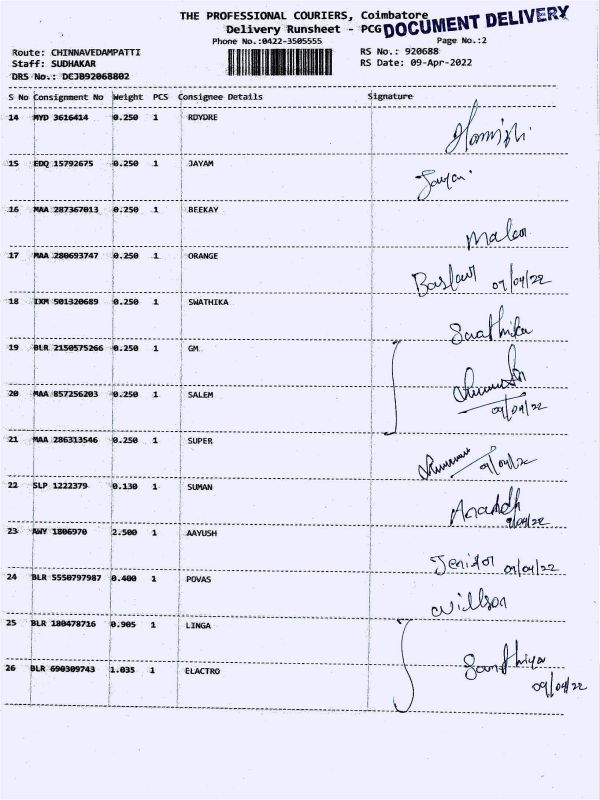 THE PROFESSIONAL COURIERS, Coimbatore
Delivery Runsheet - PCG
DOCUMENT DELIVERY
Phone No.:0422-3505555
Page No.:2
Route: CHINNAVEDAMPATTI
RS No.: 920688
Staff: SUDHAKAR
RS Date: 09-Apr-2022
DRS No.: DCJB92068802
S No Consignment No Weight PCS Consignee Details Signature
14 MYD 3616414 0.250 1 RDYDRE
15 EDQ 15792675 0.250 1 JAYAM
16 MAA 287367013 0.250 1 BEEKAY
17 MAA 280693747 0.250 1 ORANGE
09/04/22
18 IXM 501320689 0.250 1 SWATHIKA
Swathika
19 BLR 2150575266 0.250 1 GM
20 MAA 857256203 0.250 1 SALEM
09/04/22
21 MAA 286313546 0.250 1 SUPER
22 SLP 1222379 0.130 1 SUMAN
Anandh
9/04/22
23 AWY 1806970 2.500 1 AAYUSH
Jenitor 09/04/22
24 BLR 5550797987 0.400 1 POVAS
Willson
25 BLR 180478716 0.905 1 LINGA
26 BLR 690309743 1.035 1 ELACTRO
Santhiya
09/04/22